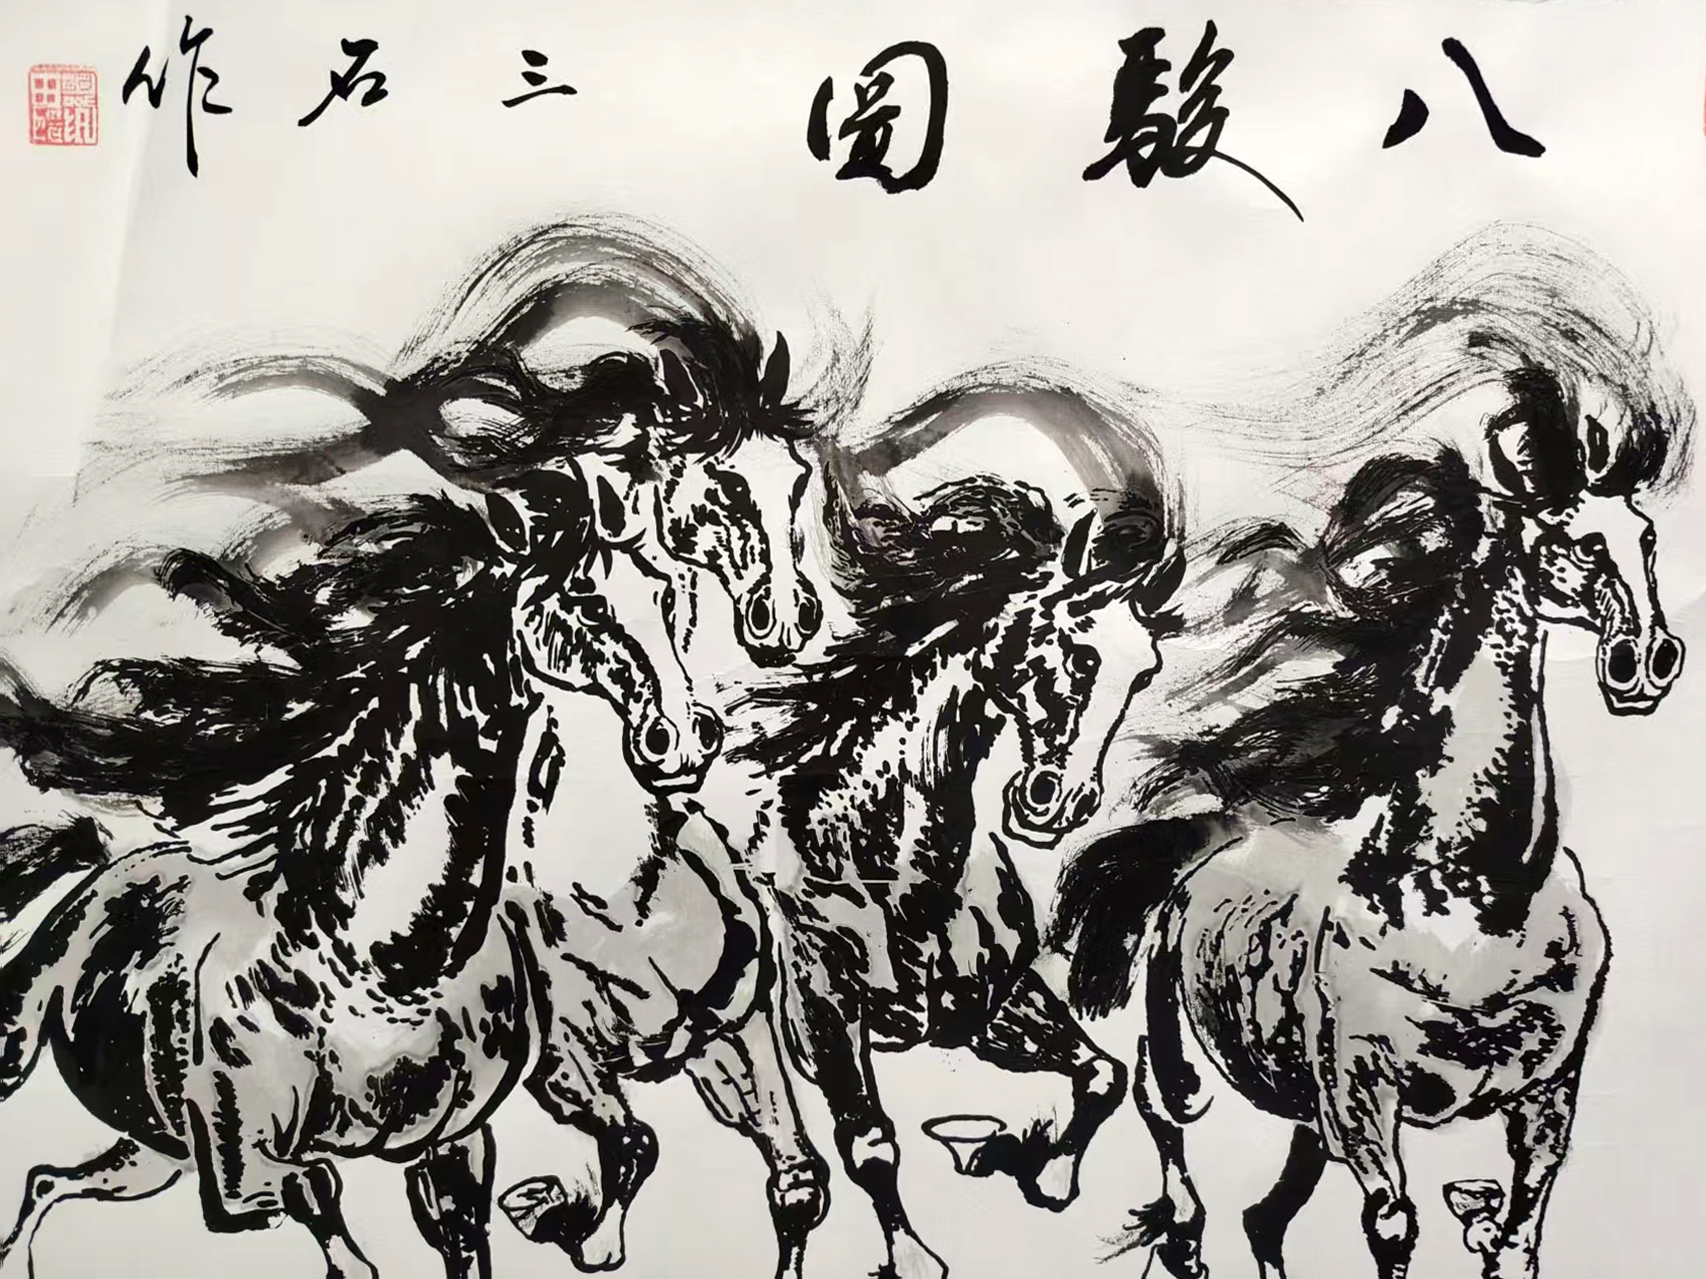 八駿圖 三石作